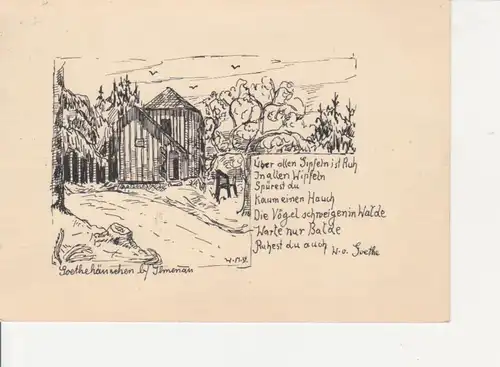 Über allen Gipfeln ist Ruh
In allen Wipfeln
Spürest du
Kaum einen Hauch
Die Vögel schweigen in Walde
Warte nur Balde
Ruhest du auch
W.v. Goethe
Goethehäuschen b/ Ilmenau